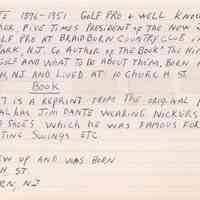 TE 1896-1951 GOLF PRO & WELL KNOW
HER. FIVE TIMES PRESIDENT OF THE NEW
GOLF PRO AT BRAIDBURN COUNTRY CLUB IN
PARK, N.J. CO AUTHOR OF THE BOOK "THE NI
GOLF AND WHAT TO DO ABOUT THEM. BORN
N, NJ AND LIVED AT 10 CHURCH ST.
BOOK
IS A REPRINT FROM THE ORIGINAL
AL HAS JIM DANTE WEARING NICKERS
D SHOES WHICH HE WAS FAMOUS FOR
TING SWINGS ETC
EW UP AND WAS BORN
H ST.
RN, NJ